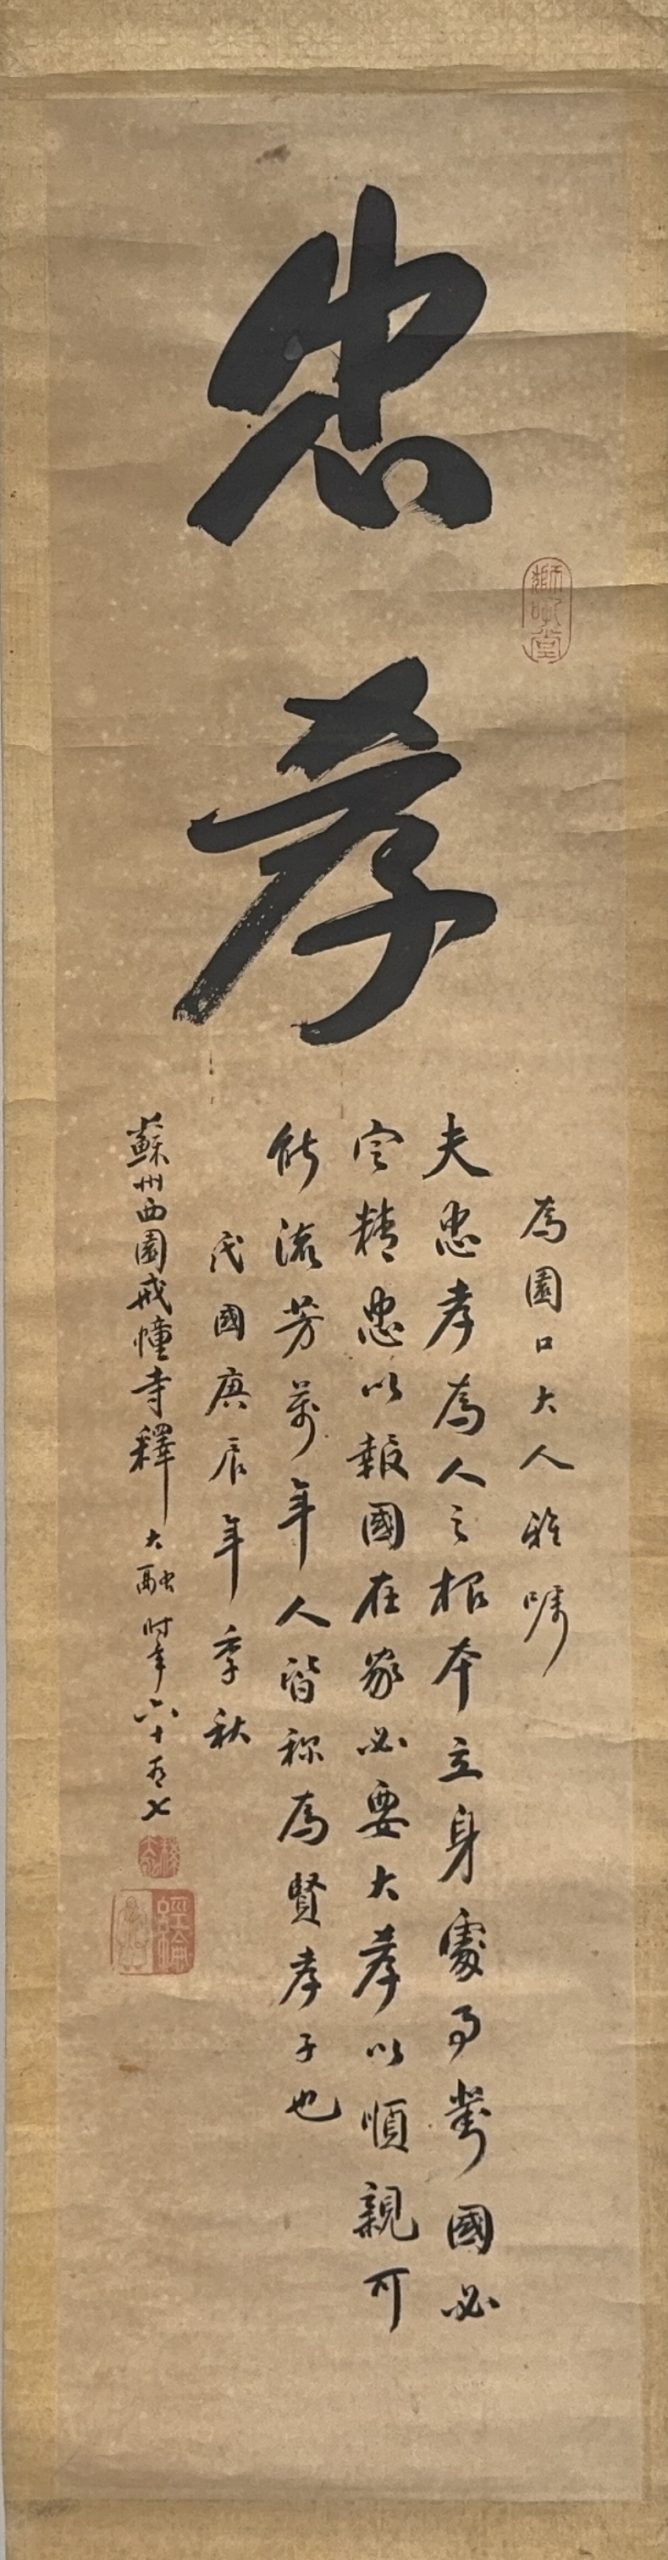 忠孝
為園口大人雅嘱
夫忠孝為人之根本立身處事對國必
定精忠以報國在家必要大孝以順親可
能流芳萬年人皆称為賢孝子也
民國庚辰年季秋
蘇州西園戒幢寺釋大融时年六十有七
獅吼堂